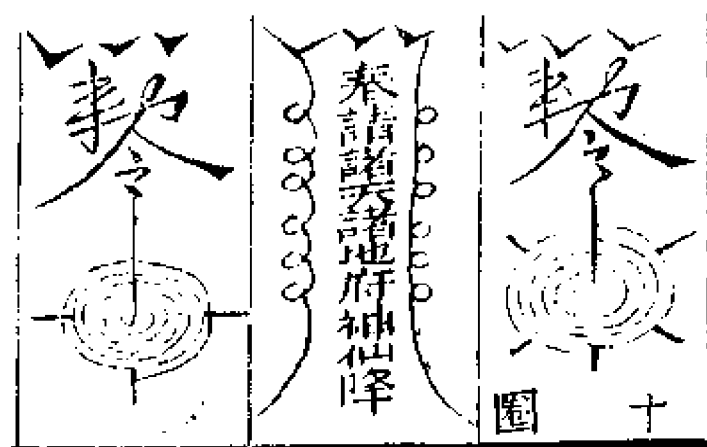 勅令
奉請諸天諸地府神仙降
勅令
十圈